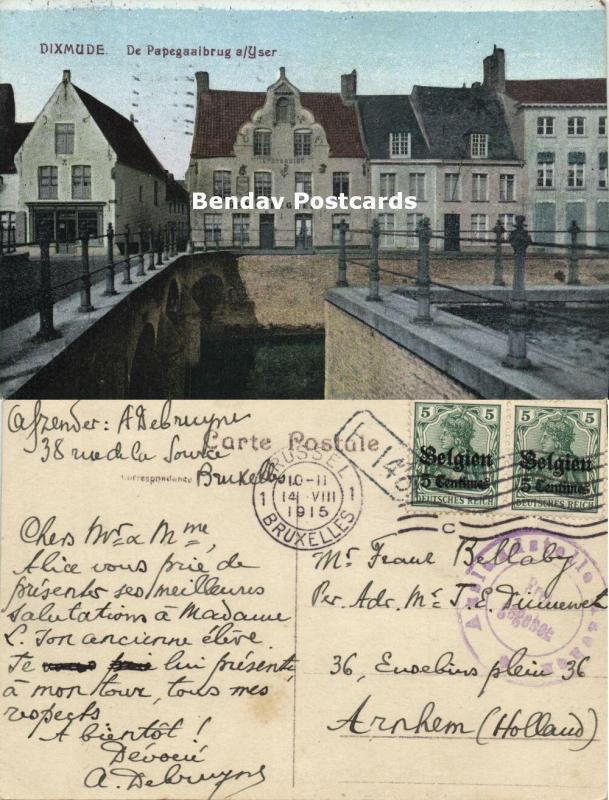 DIXMUDE. De Papegaaibrug a/Yser
Bendav Postcards
Afzender: A Debruyne
38 rue de la Source
Bruxelles
Carte Postale
Correspondance
T
140
BRUSSEL
10-11
1 14 VIII 1
1915
BRUXELLES
C
5 5
Belgien
5 Centimes
DEUTSCHES REICH
5 5
Belgien
5 Centimes
DEUTSCHES REICH
Chers Mr & Mme,
Alice vous prie de
présenter ses meilleures
salutations à Madame
L. son ancienne élève.
Je lui présente,
à mon tour, tous mes
respects
A bientôt !
Dévoué
A. Debruyne
Mr Frans Bellaby
Per. Adr. Mr T. E.
36, Eusebius plein 36
Arnhem (Holland)